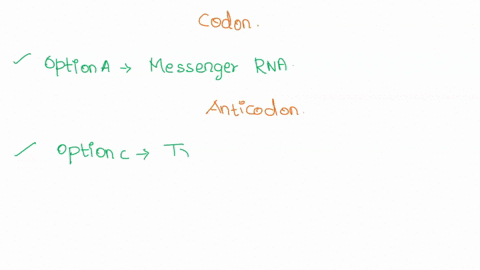 Codon.
✓ Option A → Messenger RNA.
Anticodon.
✓ Option C → Tr